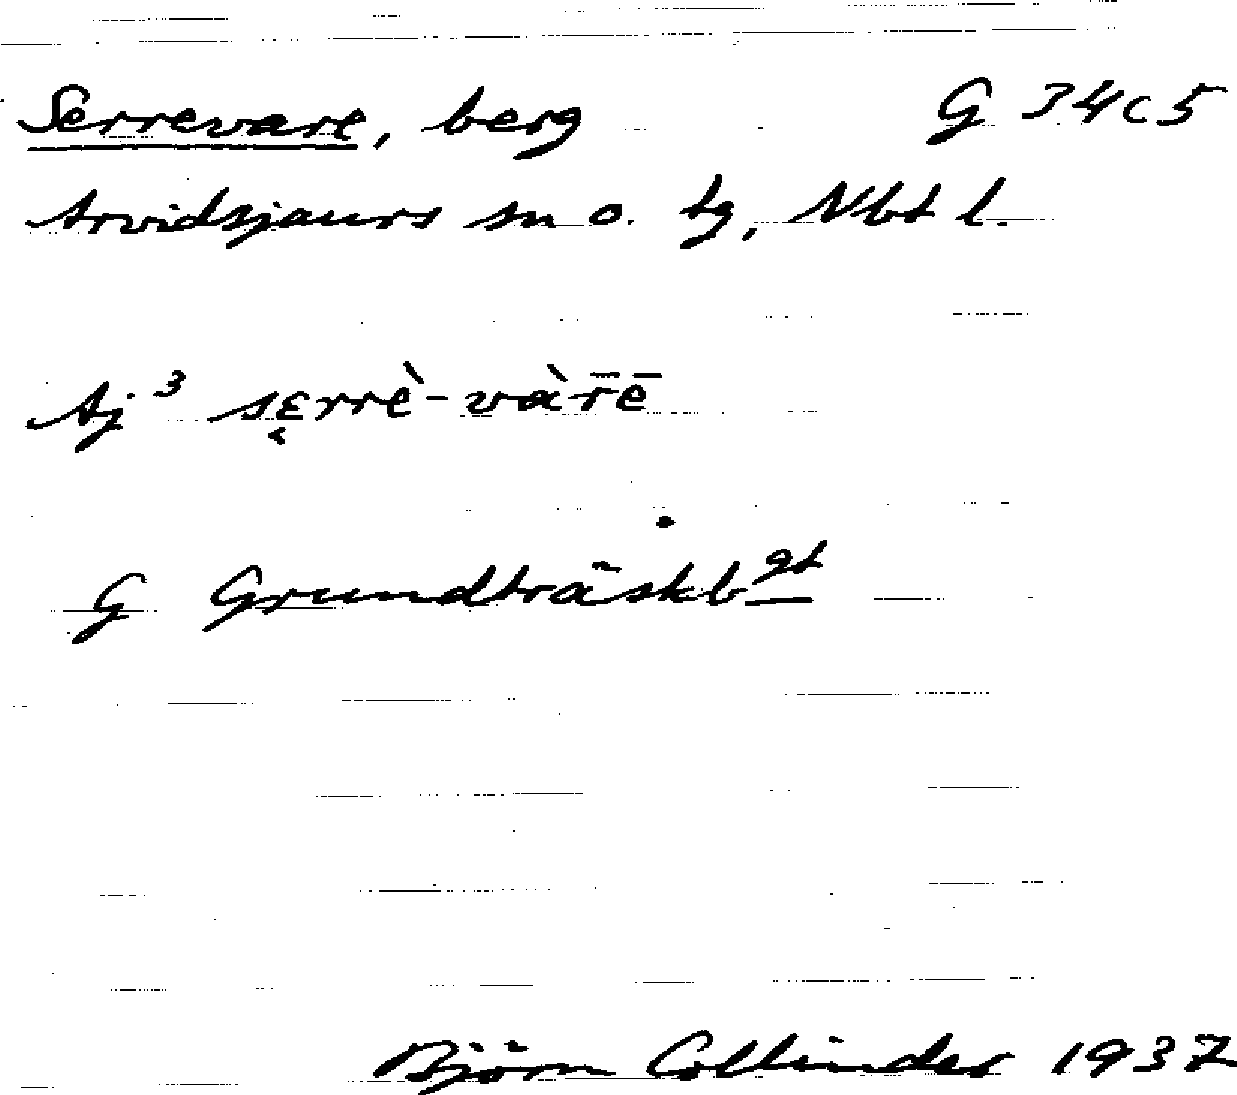 Serrevare, berg G 34c5
Arvidsjaurs sn o. tg, Nbt l.
Aj³ sε̨rrè-vàr̄ē
G Grundträskbgt
Björn Collinder 1937